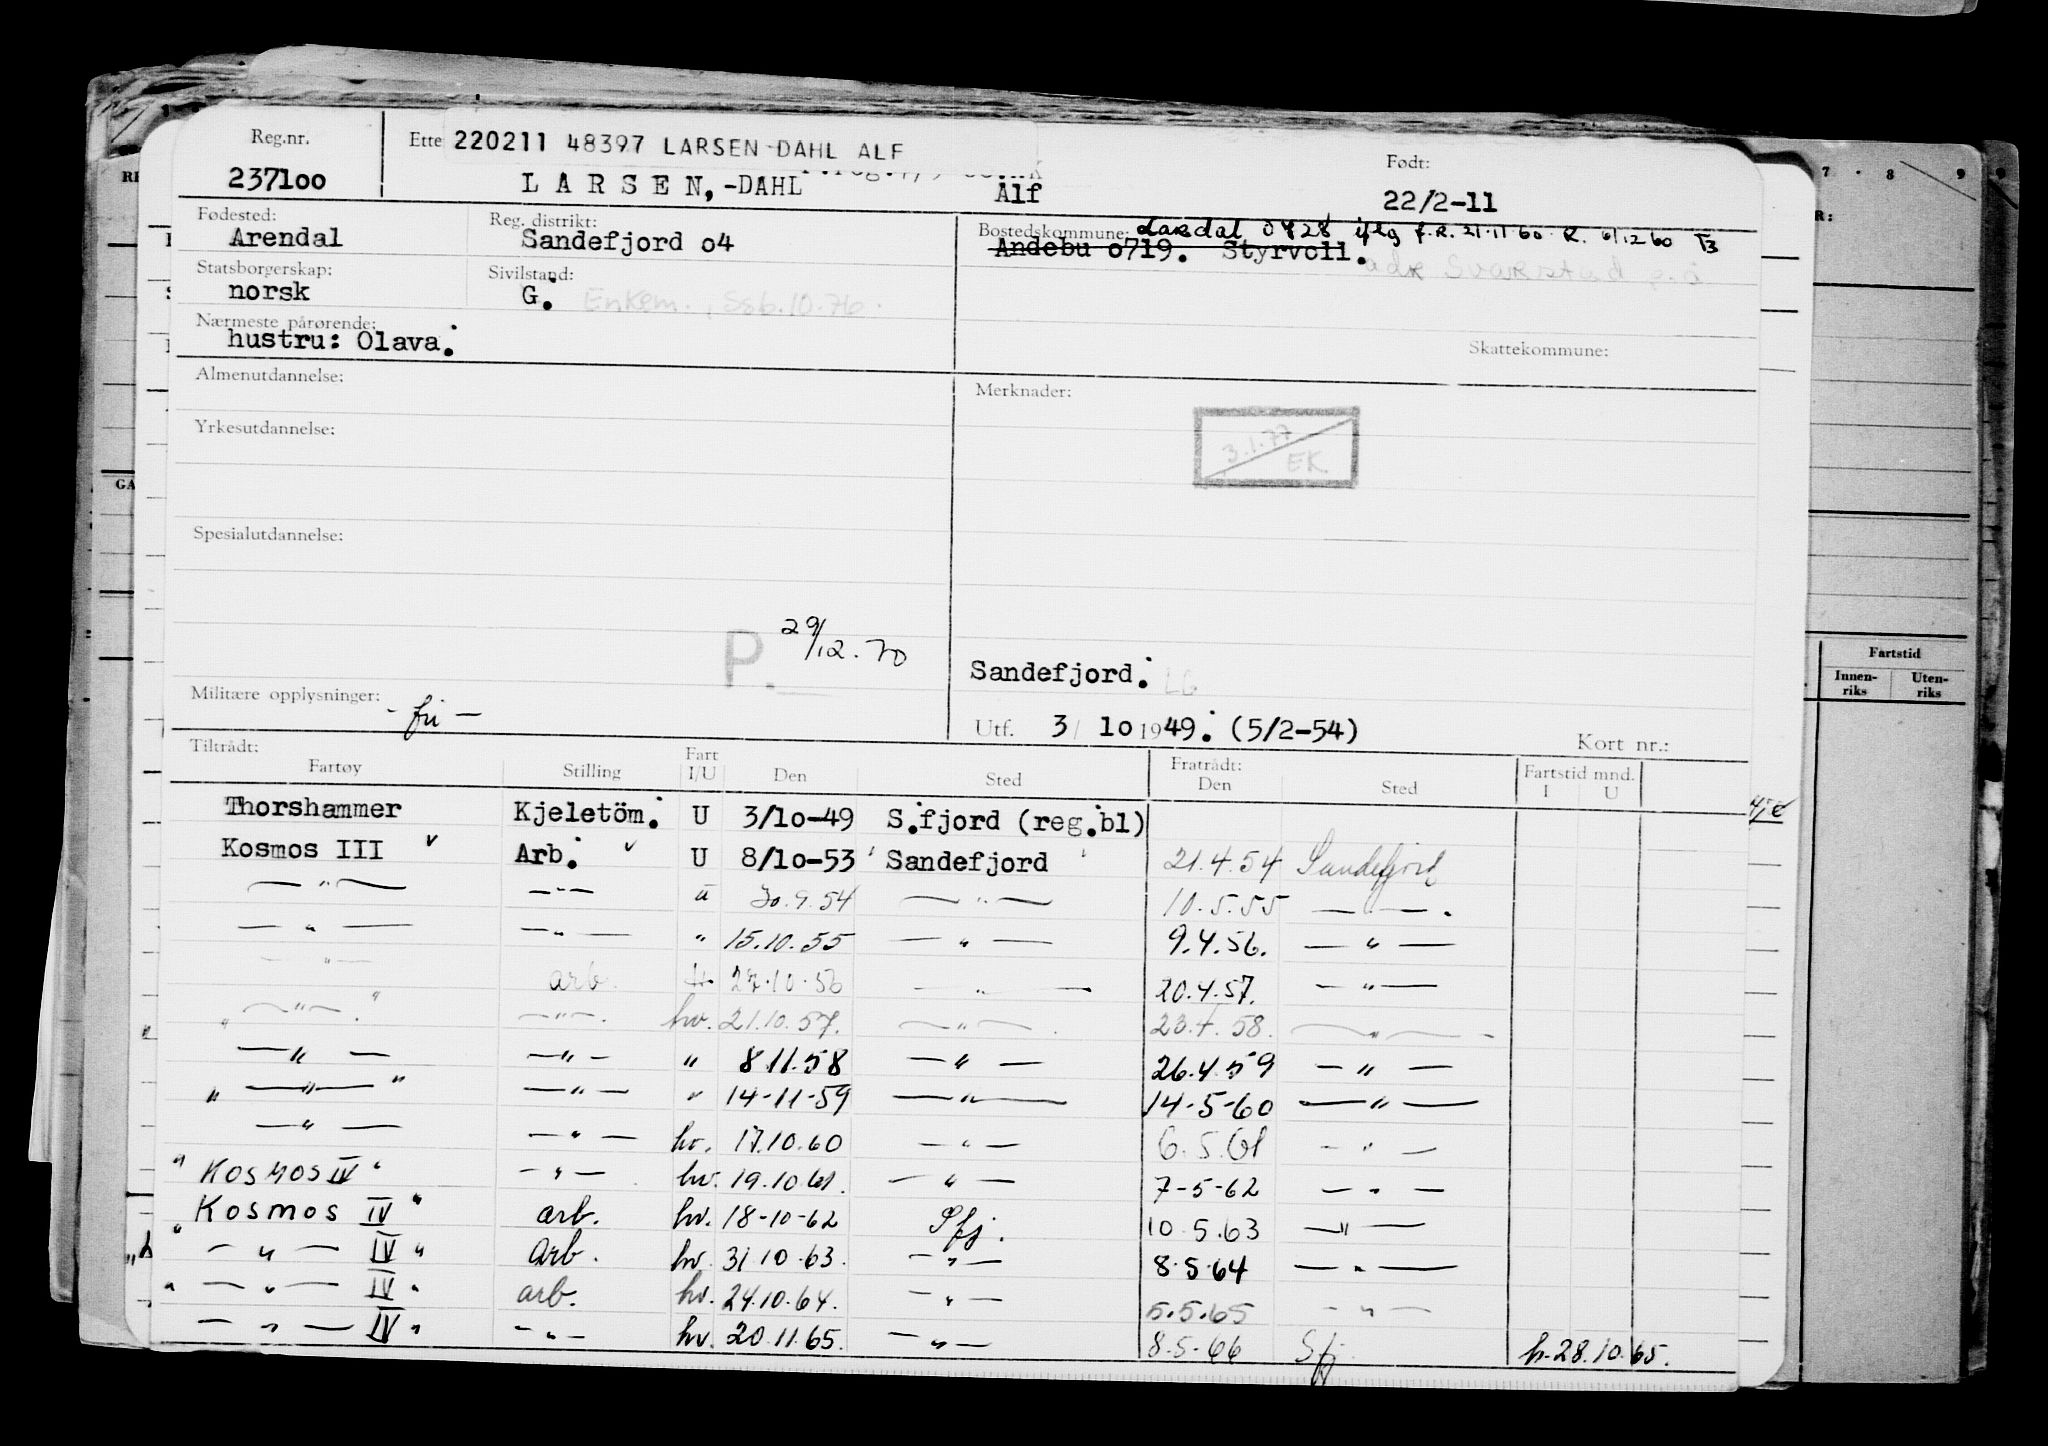 Reg.nr. Ette 220211 48397 LARSEN DAHL ALF Født:
237100 L A R S E N, -DAHL Alf 22/2-11
Fødested: Reg. distrikt: Bostedskommune: Lardal 0728 iflg f.R. 21.11.60. R. 6/12 60
Arendal Sandefjord o4 Andebu o719. Styrvoll.
adr Svarstad p.å
Statsborgerskap: Sivilstand:
norsk G. Enkem., Ssb.10.76.
Nærmeste pårørende:
hustru: Olava. Skattekommune:
Almenutdannelse: Merknader:
Yrkesutdannelse: 3.1.77
EK.
Spesialutdannelse:
P. 29/12.70
Sandefjord. LG
Militære opplysninger: - fri -
Utf. 3/ 10 1949. (5/2-54) Kort nr.:
Tiltrådt: Fratrådt: Fartstid mnd.
Fartøy Stilling Fart I/U Den Sted Den Sted I U
Thorshammer Kjeletöm. U 3/10-49 S.fjord (reg.bl)
Kosmos III v Arb. v U 8/10-53 Sandefjord 21.4.54 Sandefjord
— " — — " — " 30.9.54 — " — 10.5.55 — " —
— " — — " — " 15.10.55 — " — 9.4.56. — " —
— " — arb. 27.10.56 — " — 20.4.57. — " —
" — " — " — " — hv. 21.10.57. — " — 23.4.58. — " —
— " — — " — " 8.11.58 — " — 26.4.59 — " —
" — " — " — " — " 14-11-59 — " — 14-5-60 — " —
— " — — " — hv. 17.10.60 — " — 6.5.61 — " —
" KOSMOS IV " — " — hv. 19.10.61. — " — 7-5-62 — " —
" Kosmos IV " arb. hv. 18-10-62 Sfj. 10.5.63 — " —
— " — IV " arb. hv. 31.10.63. — " — 8.5.64 — " —
" — " — IV " arb. hv. 24.10.64. — " — 5.5.65 — " —
— " — IV " — " — hv. 20.11.65. — " — 8.5.66 Sfj. h.28.10.65.
7 8 9
GA
Fartstid
Innen-
riks
Uten-
riks